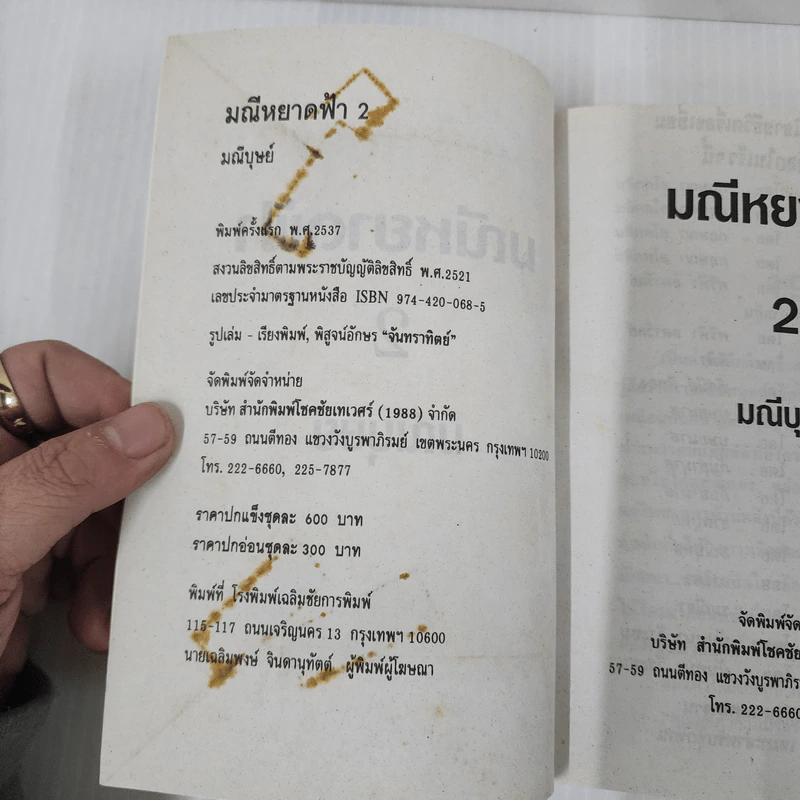 มณีหยาดฟ้า 2
มณีบุษย์
พิมพ์ครั้งแรก พ.ศ.2537
สงวนลิขสิทธิ์ตามพระราชบัญญัติลิขสิทธิ์ พ.ศ.2521
เลขประจำมาตรฐานหนังสือ ISBN 974-420-068-5
รูปเล่ม - เรียงพิมพ์, พิสูจน์อักษร "จันทราทิตย์"
จัดพิมพ์จัดจำหน่าย
บริษัท สำนักพิมพ์โชคชัยเทเวศร์ (1988) จำกัด
57-59 ถนนตีทอง แขวงวังบูรพาภิรมย์ เขตพระนคร กรุงเทพฯ 10200
โทร. 222-6660, 225-7877
ราคาปกแข็งชุดละ 600 บาท
ราคาปกอ่อนชุดละ 300 บาท
พิมพ์ที่ โรงพิมพ์เฉลิมชัยการพิมพ์
115-117 ถนนเจริญนคร 13 กรุงเทพฯ 10600
นายเฉลิมพงษ์ จินดานุทัตต์ ผู้พิมพ์ผู้โฆษณา
มณีหยา
2
มณีบุ
จัดพิมพ์จัด
บริษัท สำนักพิมพ์โชคชัย
57-59 ถนนตีทอง แขวงวังบูรพาภิร
โทร. 222-6660